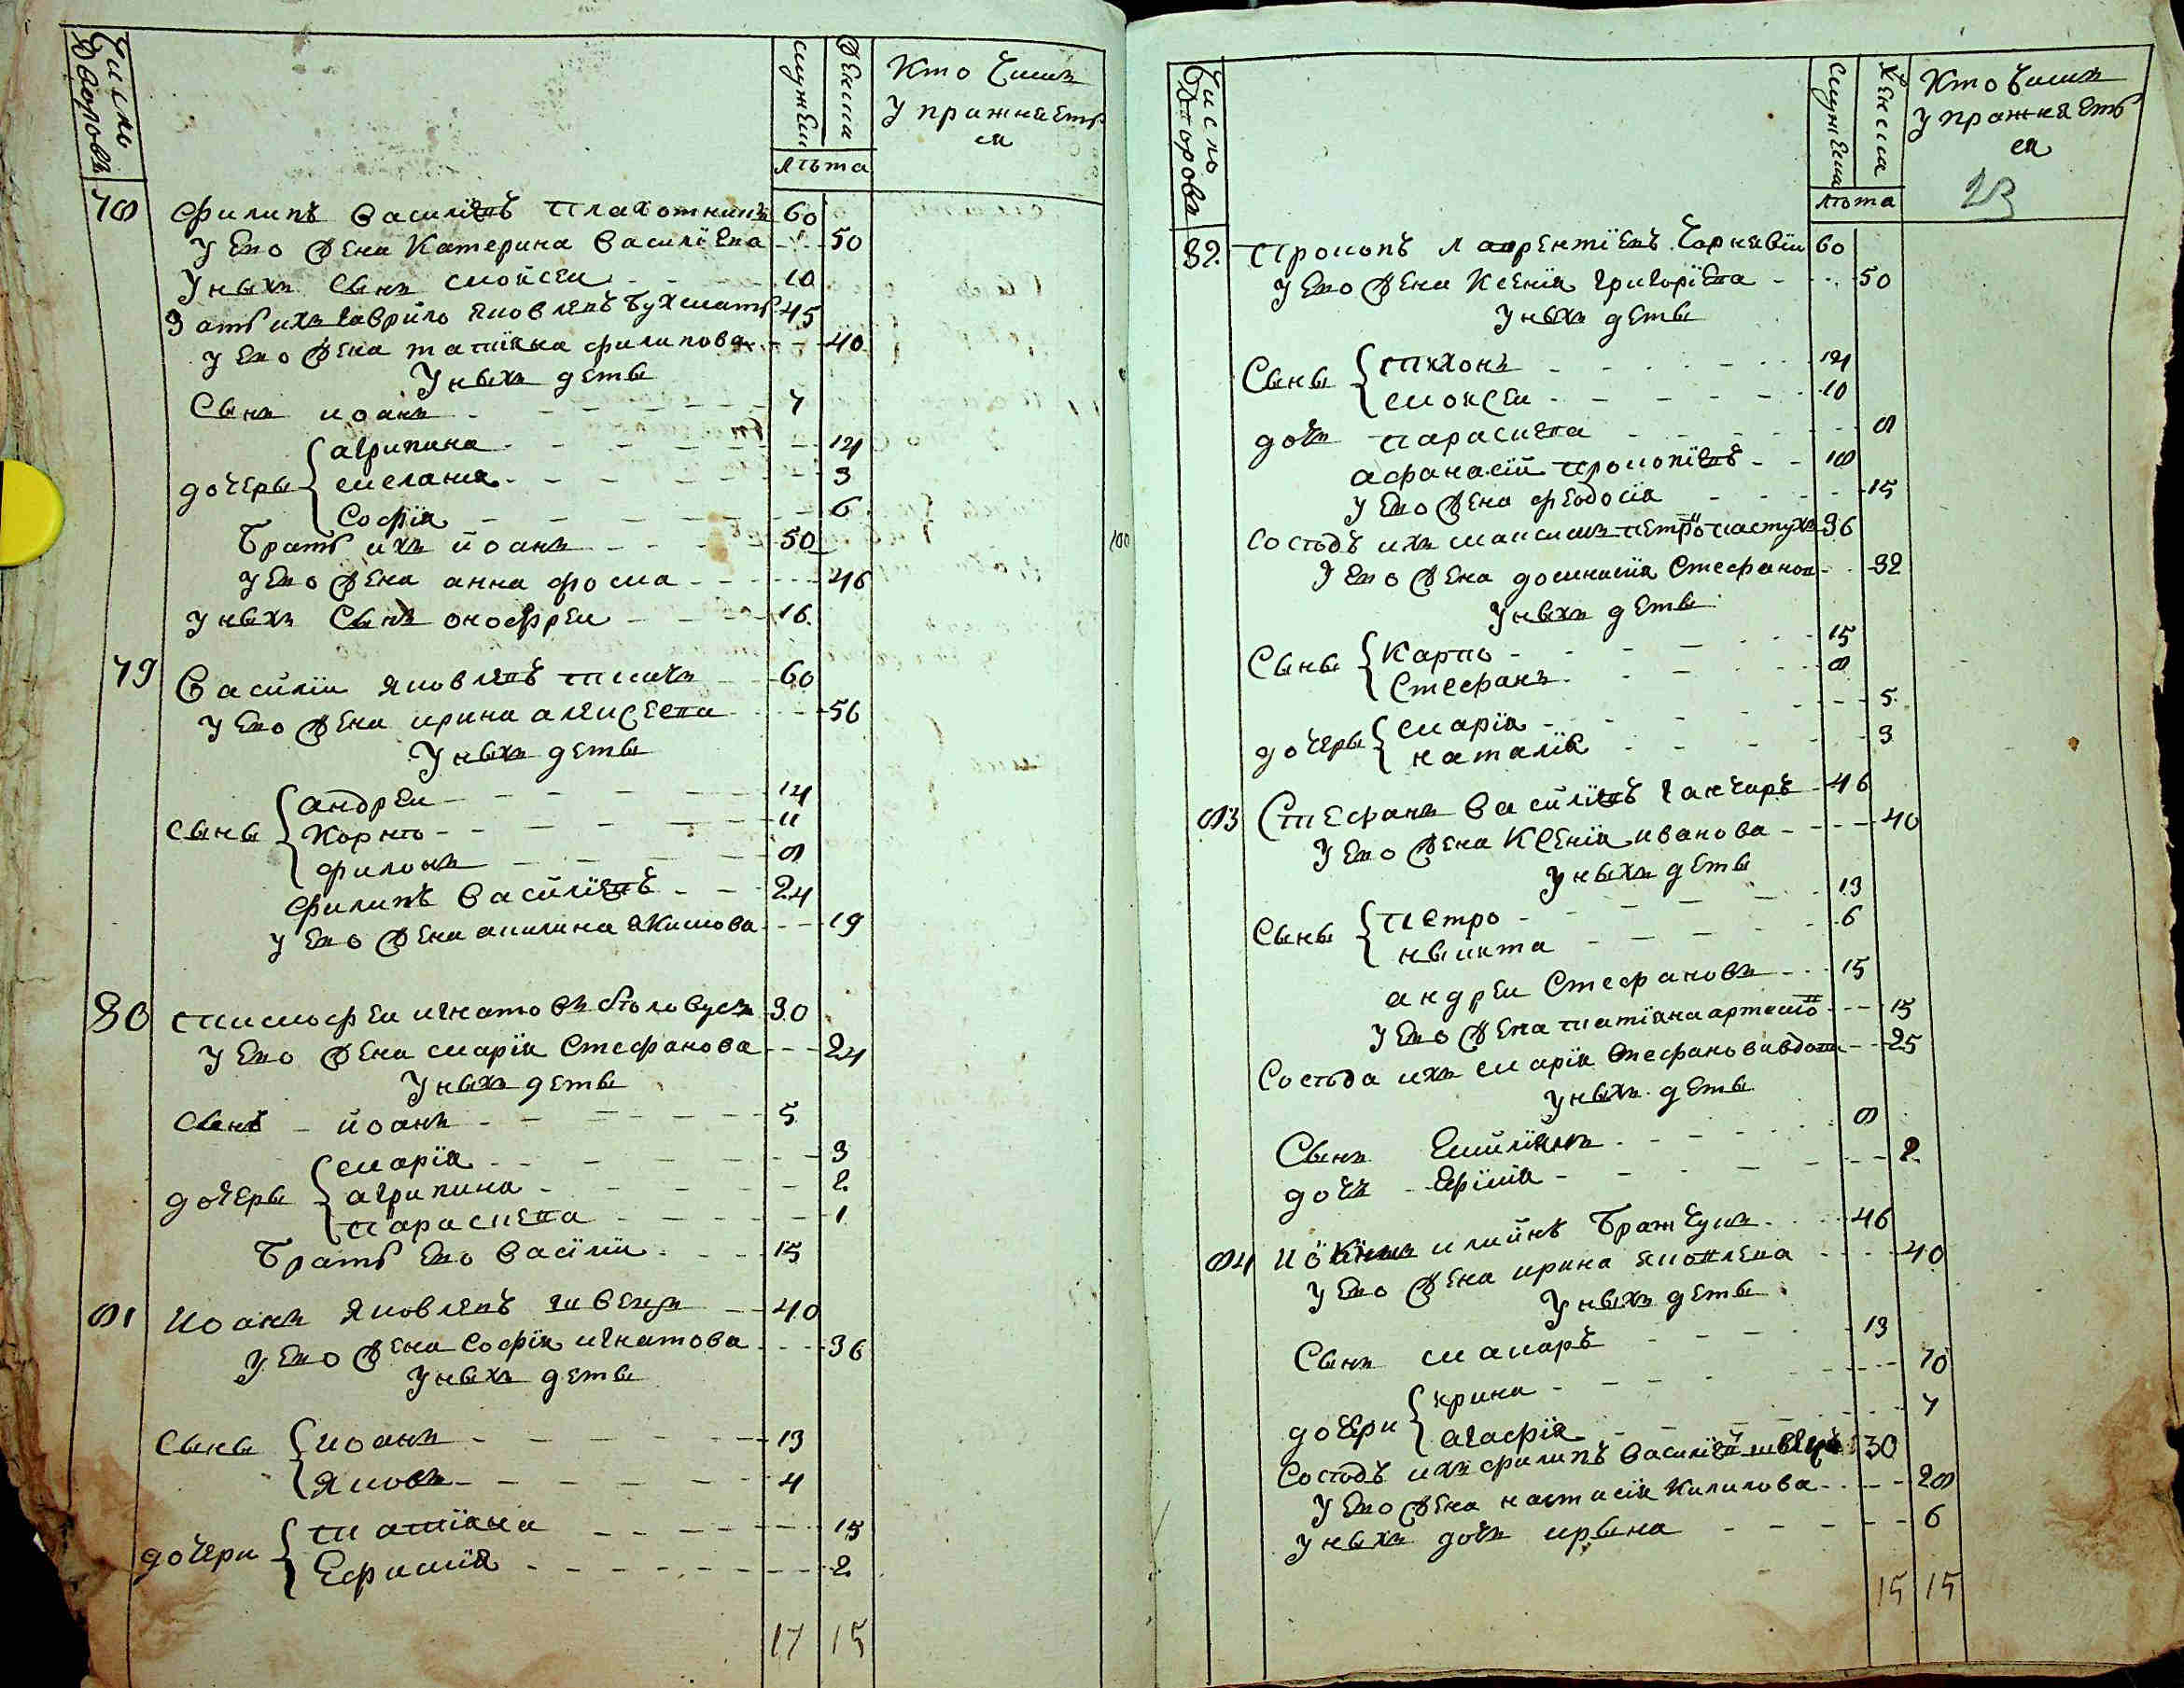 Число Дворовъ
мужеска
женска
лѣта
Кто чимъ
упражняеть
ся
78 Филипъ Василіевъ Плахотникъ 60
У его жена Катерина Василіева 50
У ныхъ сынъ Мойсеи 10
Зать ихъ Гаврило Яковлевъ Бухмать 45
У его жена Татіяна Филипова 40
У ныхъ деты
Сынъ Иоанъ 7
дочеры Агрипина 14
Мелания 3
Софія 6
Брать ихъ Иоанъ 50
У его жена Анна Фома 46
У ныхъ сынъ Онофреи 16
79 Василіи Яковлевъ 60
У его жена Ирина Алексеева 56
У ныхъ деты
Сыны Андреи 14
Корнѣо 11
Филонъ 8
Филипъ Василіевъ 24
У его жена Акилина Якимова 19
80 Тимофеи Игнатовъ Столовусъ 30
У его жена Марія Стефанова 24
У ныхъ деты
Сынъ Иоанъ 5
дочеры Марія 3
Агрипина 2
Параскева 1
Брать его Василіи 15
81 Иоанъ Яковлевъ Швецъ 40
У его жена Софія Игнатова 36
У ныхъ деты
Сыны Иоанъ 13
Яковъ 4
дочери Татіяна 15
Ефимія 2
17 15
Число Дворовъ
мужеска
женска
лѣта
Кто чимъ
упражняеть
ся
23
82 Прокопъ Лаврентіевъ Чорнявіи 60
У его жена Ксенія Григоріева 50
У ныхъ деты
Сыны Тихонъ 14
Моисеи 10
дочъ Параскева 8
Афанасіи Прокопіевъ 18
У его жена Феодосія 15
Состодъ ихъ Максимъ Петро Пастухъ 36
У его жена Домникія Стефанов 32
У ныхъ деты
Сыны Карпо 15
Стефанъ 8
дочеры Марія 5
Наталія 3
83 Стефанъ Василіевъ Ганчаръ 46
У его жена Ксенія Иванова 40
У ныхъ деты
Сыны Петро 13
Ныкита 6
Андреи Стефановъ 15
У его жена Татіяна Артемо 15
Состода ихъ Марія Стефанова вдова 25
У ныхъ деты
Сынъ Емиліянъ 8
дочъ Ефімія 2
84 Илиинъ Бражчукъ 46
У его жена Ирина Яковлева 40
У ныхъ деты
Сынъ Макаръ 13
дочери Ирина 10
Агафія 7
Состодъ ихъ Филипъ Василіев Швецъ 30
У его жена Настасія Кирилова 28
У ныхъ дочъ Ирына 6
15 15